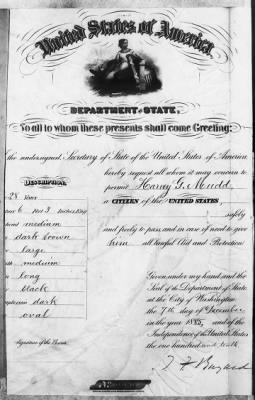 United States of America,
DEPARTMENT OF STATE,
To all to whom these presents shall come Greeting:
the undersigned, Secretary of State of the United States of America
hereby request all whom it may concern to
permit Harvey G. Mudd
DESCRIPTION.
a CITIZEN OF THE UNITED STATES, safely
28 Years
and freely to pass, and in case of need to give
6 Feet 3 Inches Eng.
him all lawful Aid and Protection
medium
dark brown
large
medium
long
Given under my hand and the
black
Seal of the Department of State
dark
at the City of Washington
oval
the 7th day of December
in the year 1885, and of the
Signature of the Bearer.
Independence of the United States
the one hundred and tenth
T. F. Bayard